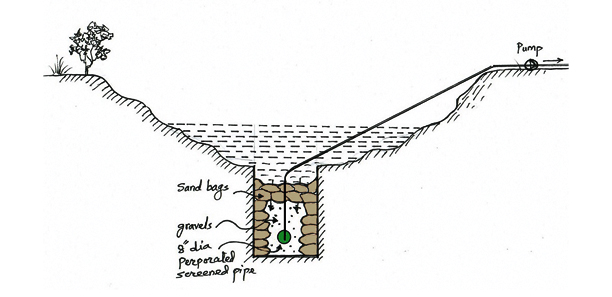 Pump
Sand bags
gravels
8" dia
perporated
screened pipe